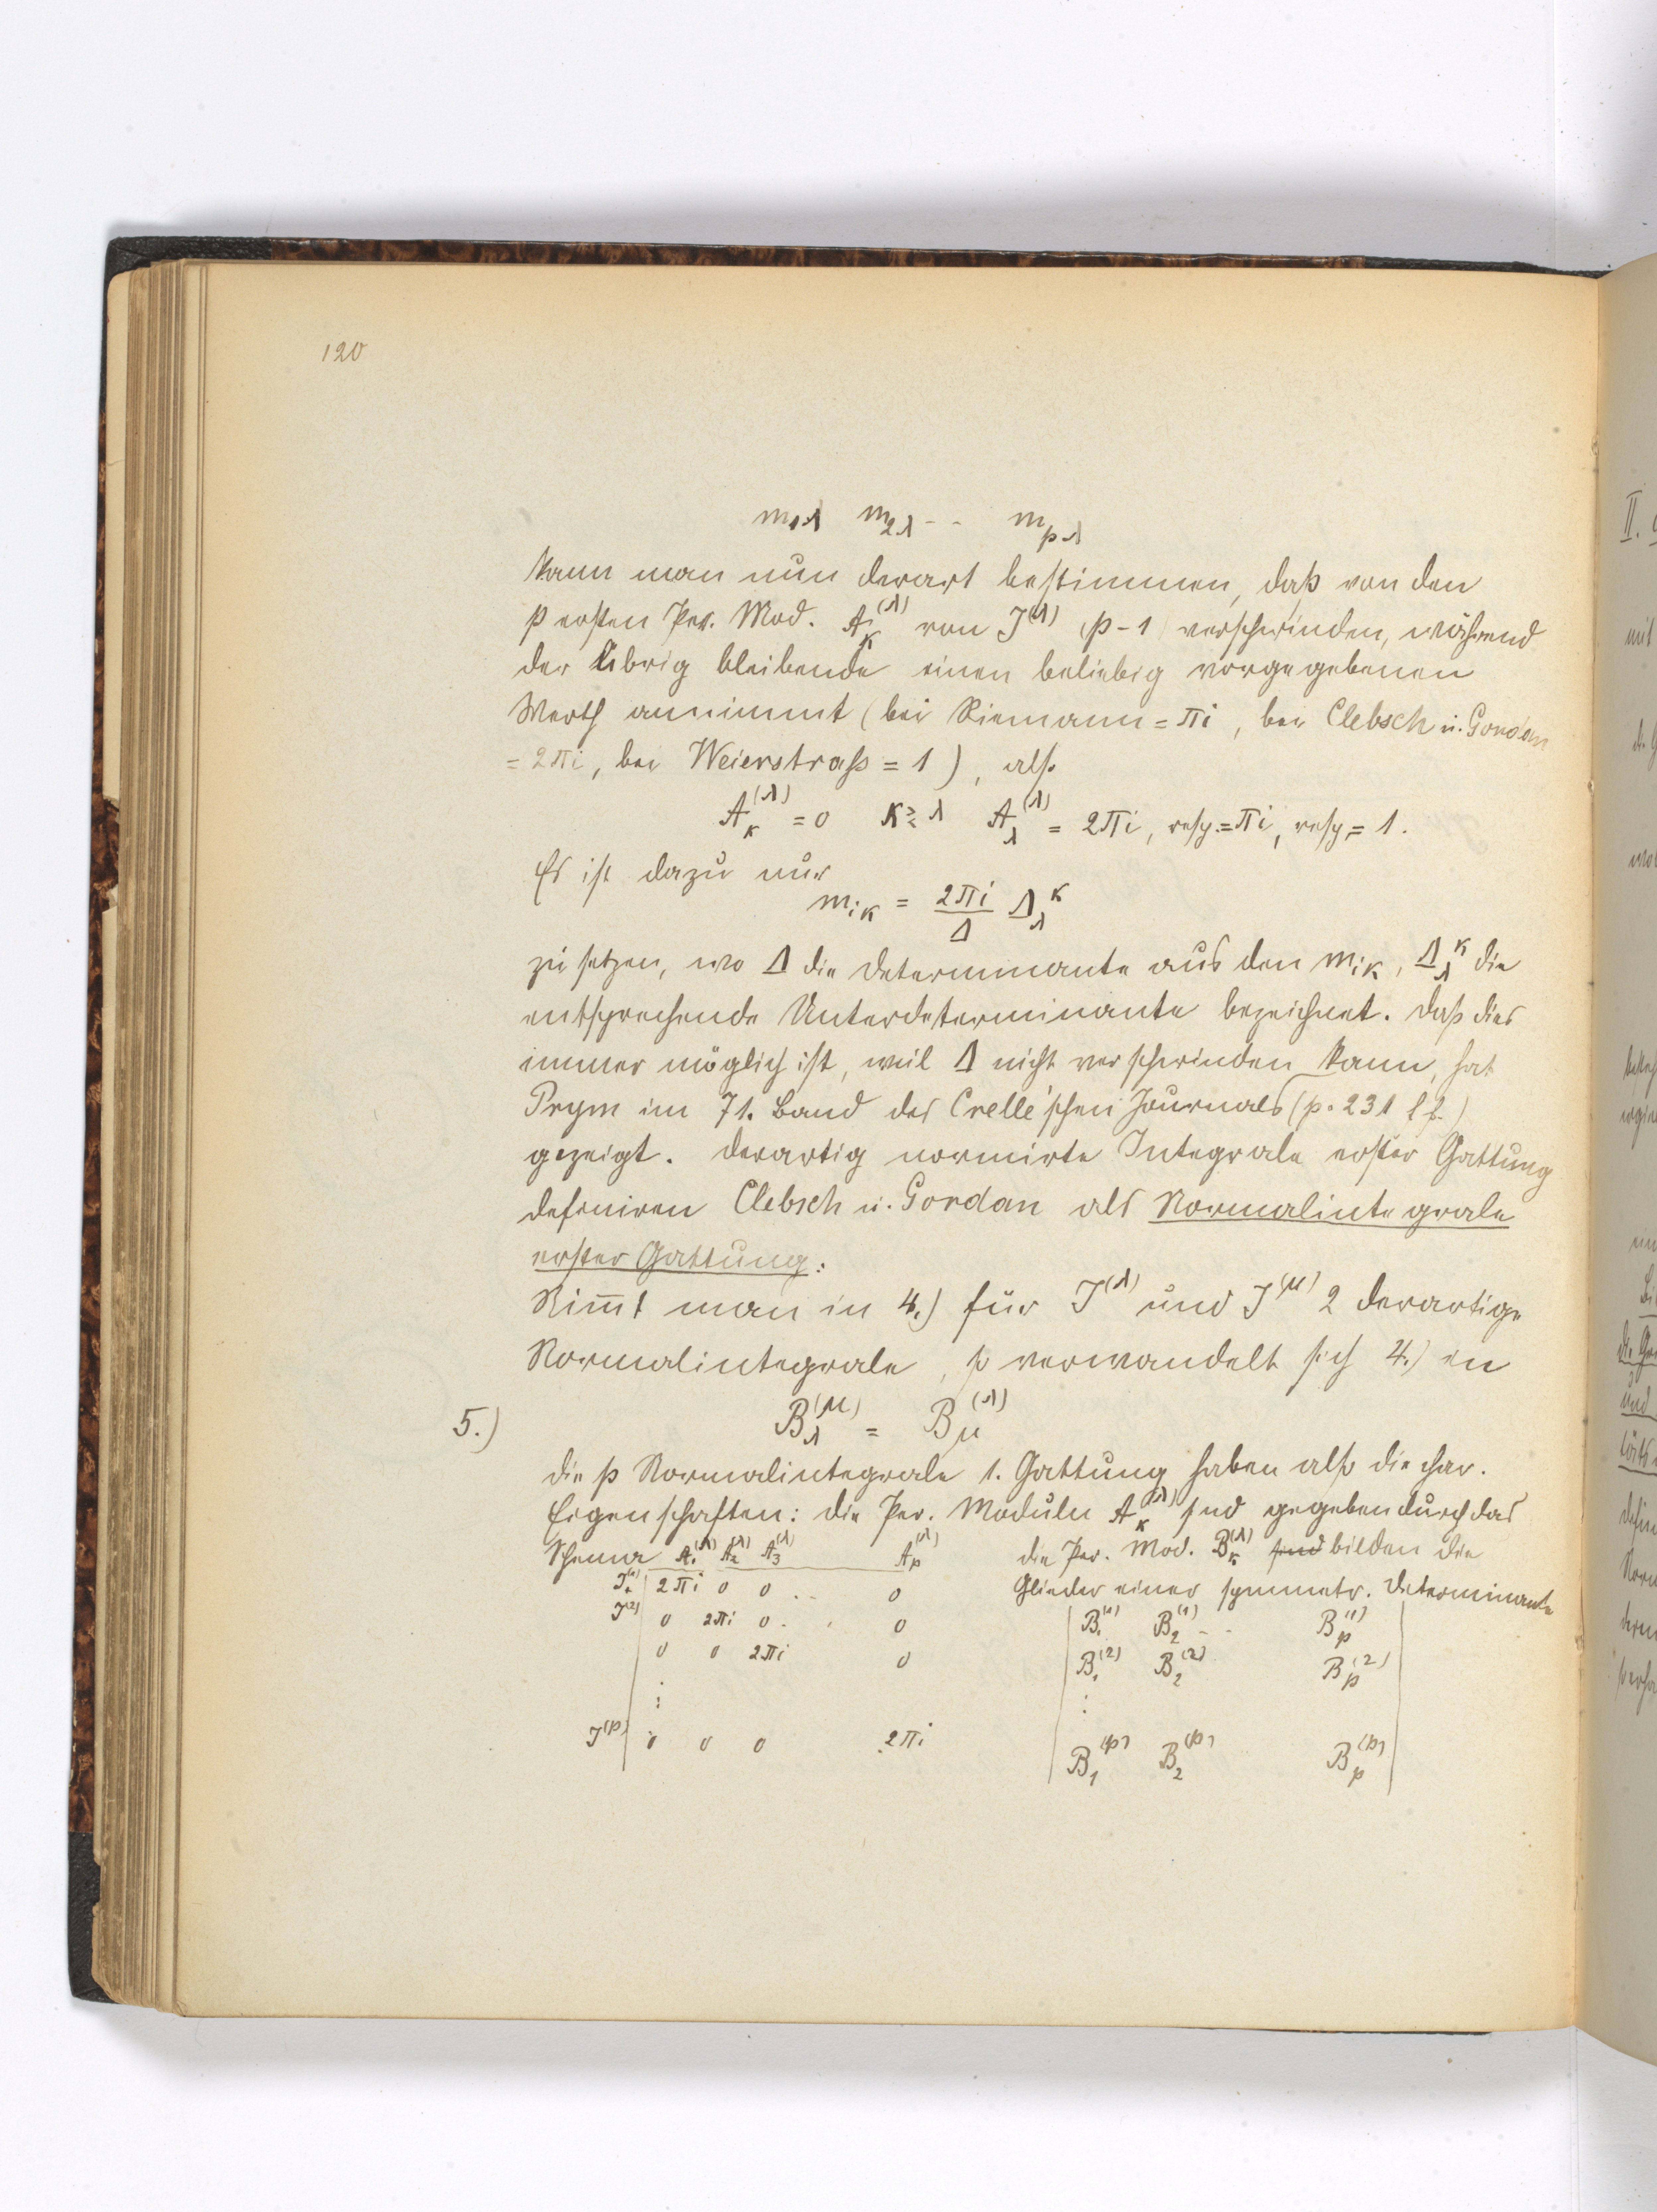 120
m₁λ m₂λ - - m_pλ
kann man nun derart bestimmen, daß von den
p ersten Per. Mod. A_κ^(λ) von J^(λ) (p-1) verschwinden, während
der übrig bleibende einen beliebig vorgegebenen
Werth annimmt (bei Riemann = πi, bei Clebsch u. Gordan
= 2πi, bei Weierstraß = 1), also
A_κ^(λ) = 0 κ ≷ λ A_λ^(λ) = 2πi, resp. = πi, resp. = 1.
Es ist dazu nur
m_iκ = 2πi/Δ Δ_λ^κ
zu setzen, wo Δ die Determinante aus den m_iκ, Δ_λ^κ die
entsprechende Unterdeterminante bezeichnet. Daß dies
immer möglich ist, weil Δ nicht verschwinden kann, hat
Prym im 71. Band des Crelle'schen Journals (p. 231 ff.)
gezeigt. Derartig normirte Integrale erster Gattung
definiren Clebsch u. Gordan als Normalintegrale
erster Gattung.
Nim̅t man in 4.) für J^(λ) und J^(μ) 2 derartige
Normalintegrale, so verwandelt sich 4.) in
5.) B_λ^(μ) = B_μ^(λ)
die p Normalintegrale 1. Gattung haben also die char.
Eigenschaften: die Per. Moduln A_κ^(λ) sind gegeben durch das
Schema A₁^(λ) A₂^(λ) A₃^(λ) A_p^(λ) die Per. Mod. B_κ^(λ) sind bilden die
J^(1) 2πi 0 0 . - 0 Glieder einer symmetr. Determinante
J^(2) 0 2πi 0 . . 0 B₁^(1) B₂^(1) - - B_p^(1)
0 0 2πi 0 B₁^(2) B₂^(2) B_p^(2)
J^(p) 0 0 0 2πi B₁^(p) B₂^(p) B_p^(p)
II.
mit